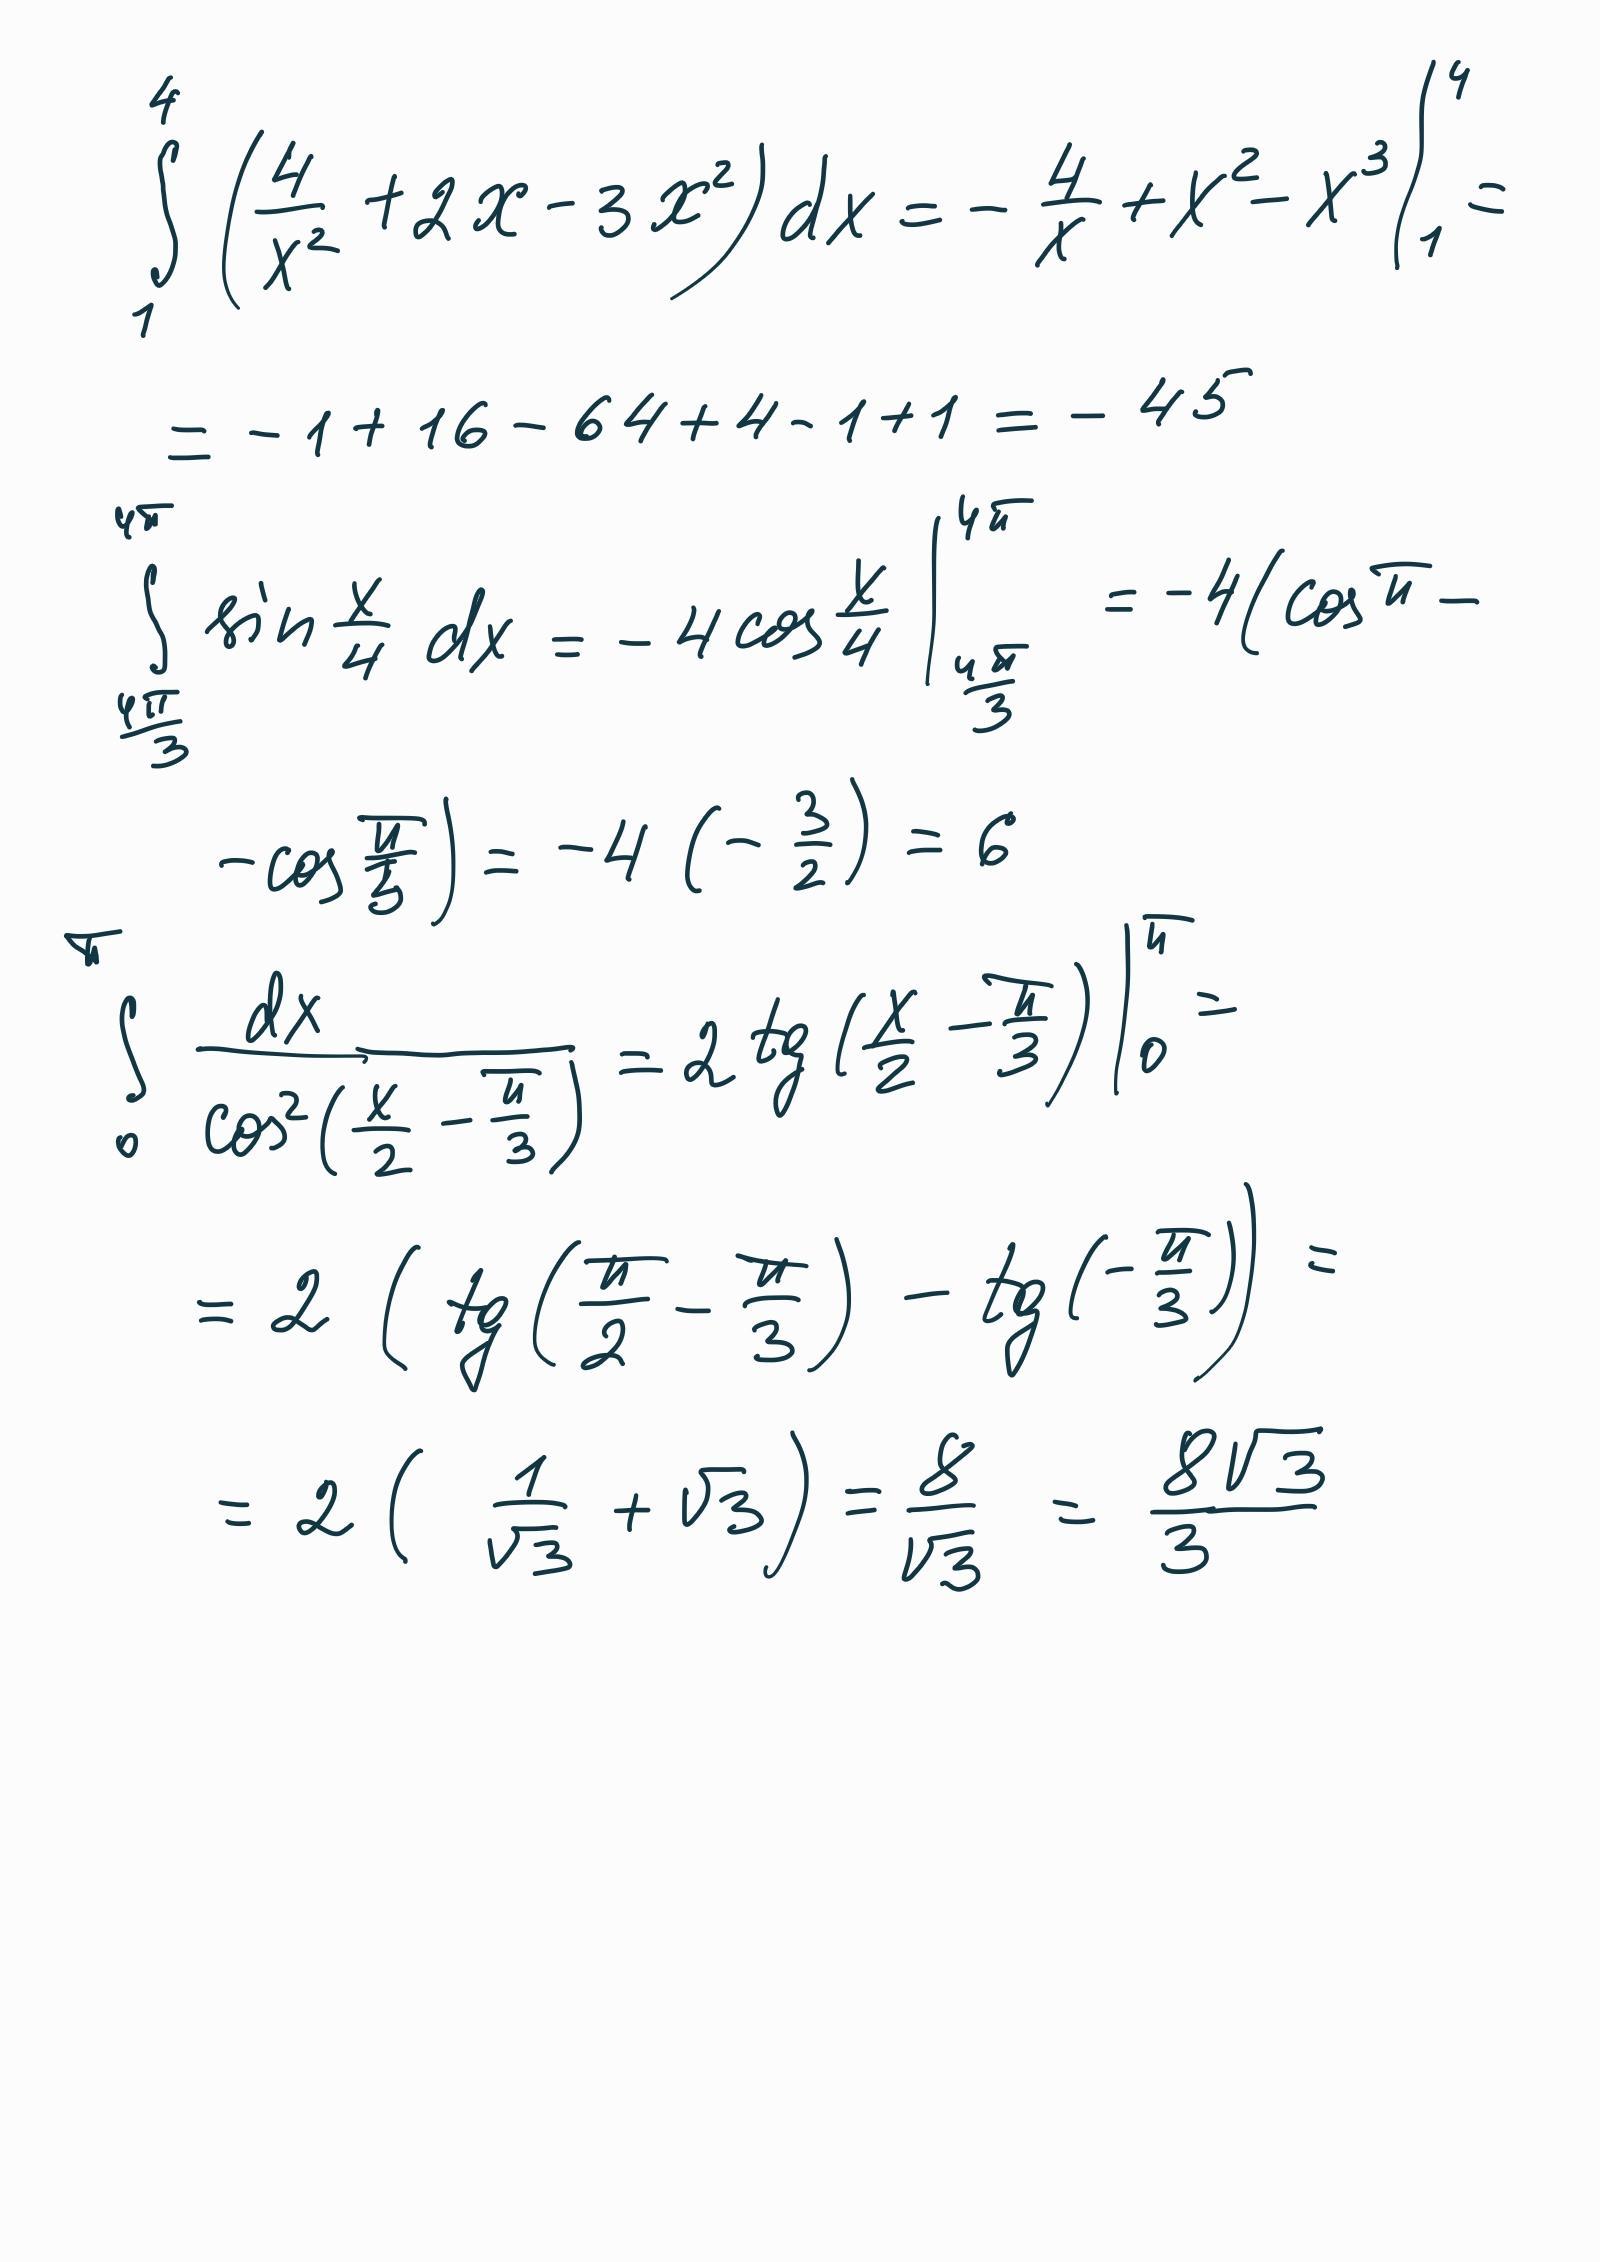 ∫₁⁴ (4/x² + 2x - 3x²) dx = - 4/x + x² - x³ |₁⁴ =
= - 1 + 16 - 64 + 4 - 1 + 1 = - 45
∫_{4π/3}^{4π} sin x/4 dx = - 4 cos x/4 |_{4π/3}^{4π} = - 4 (cos π -
- cos π/3) = - 4 (- 3/2) = 6
∫₀^π dx / cos² (x/2 - π/3) = 2 tg (x/2 - π/3) |₀^π =
= 2 (tg (π/2 - π/3) - tg (- π/3)) =
= 2 (1/√3 + √3) = 8/√3 = 8√3/3